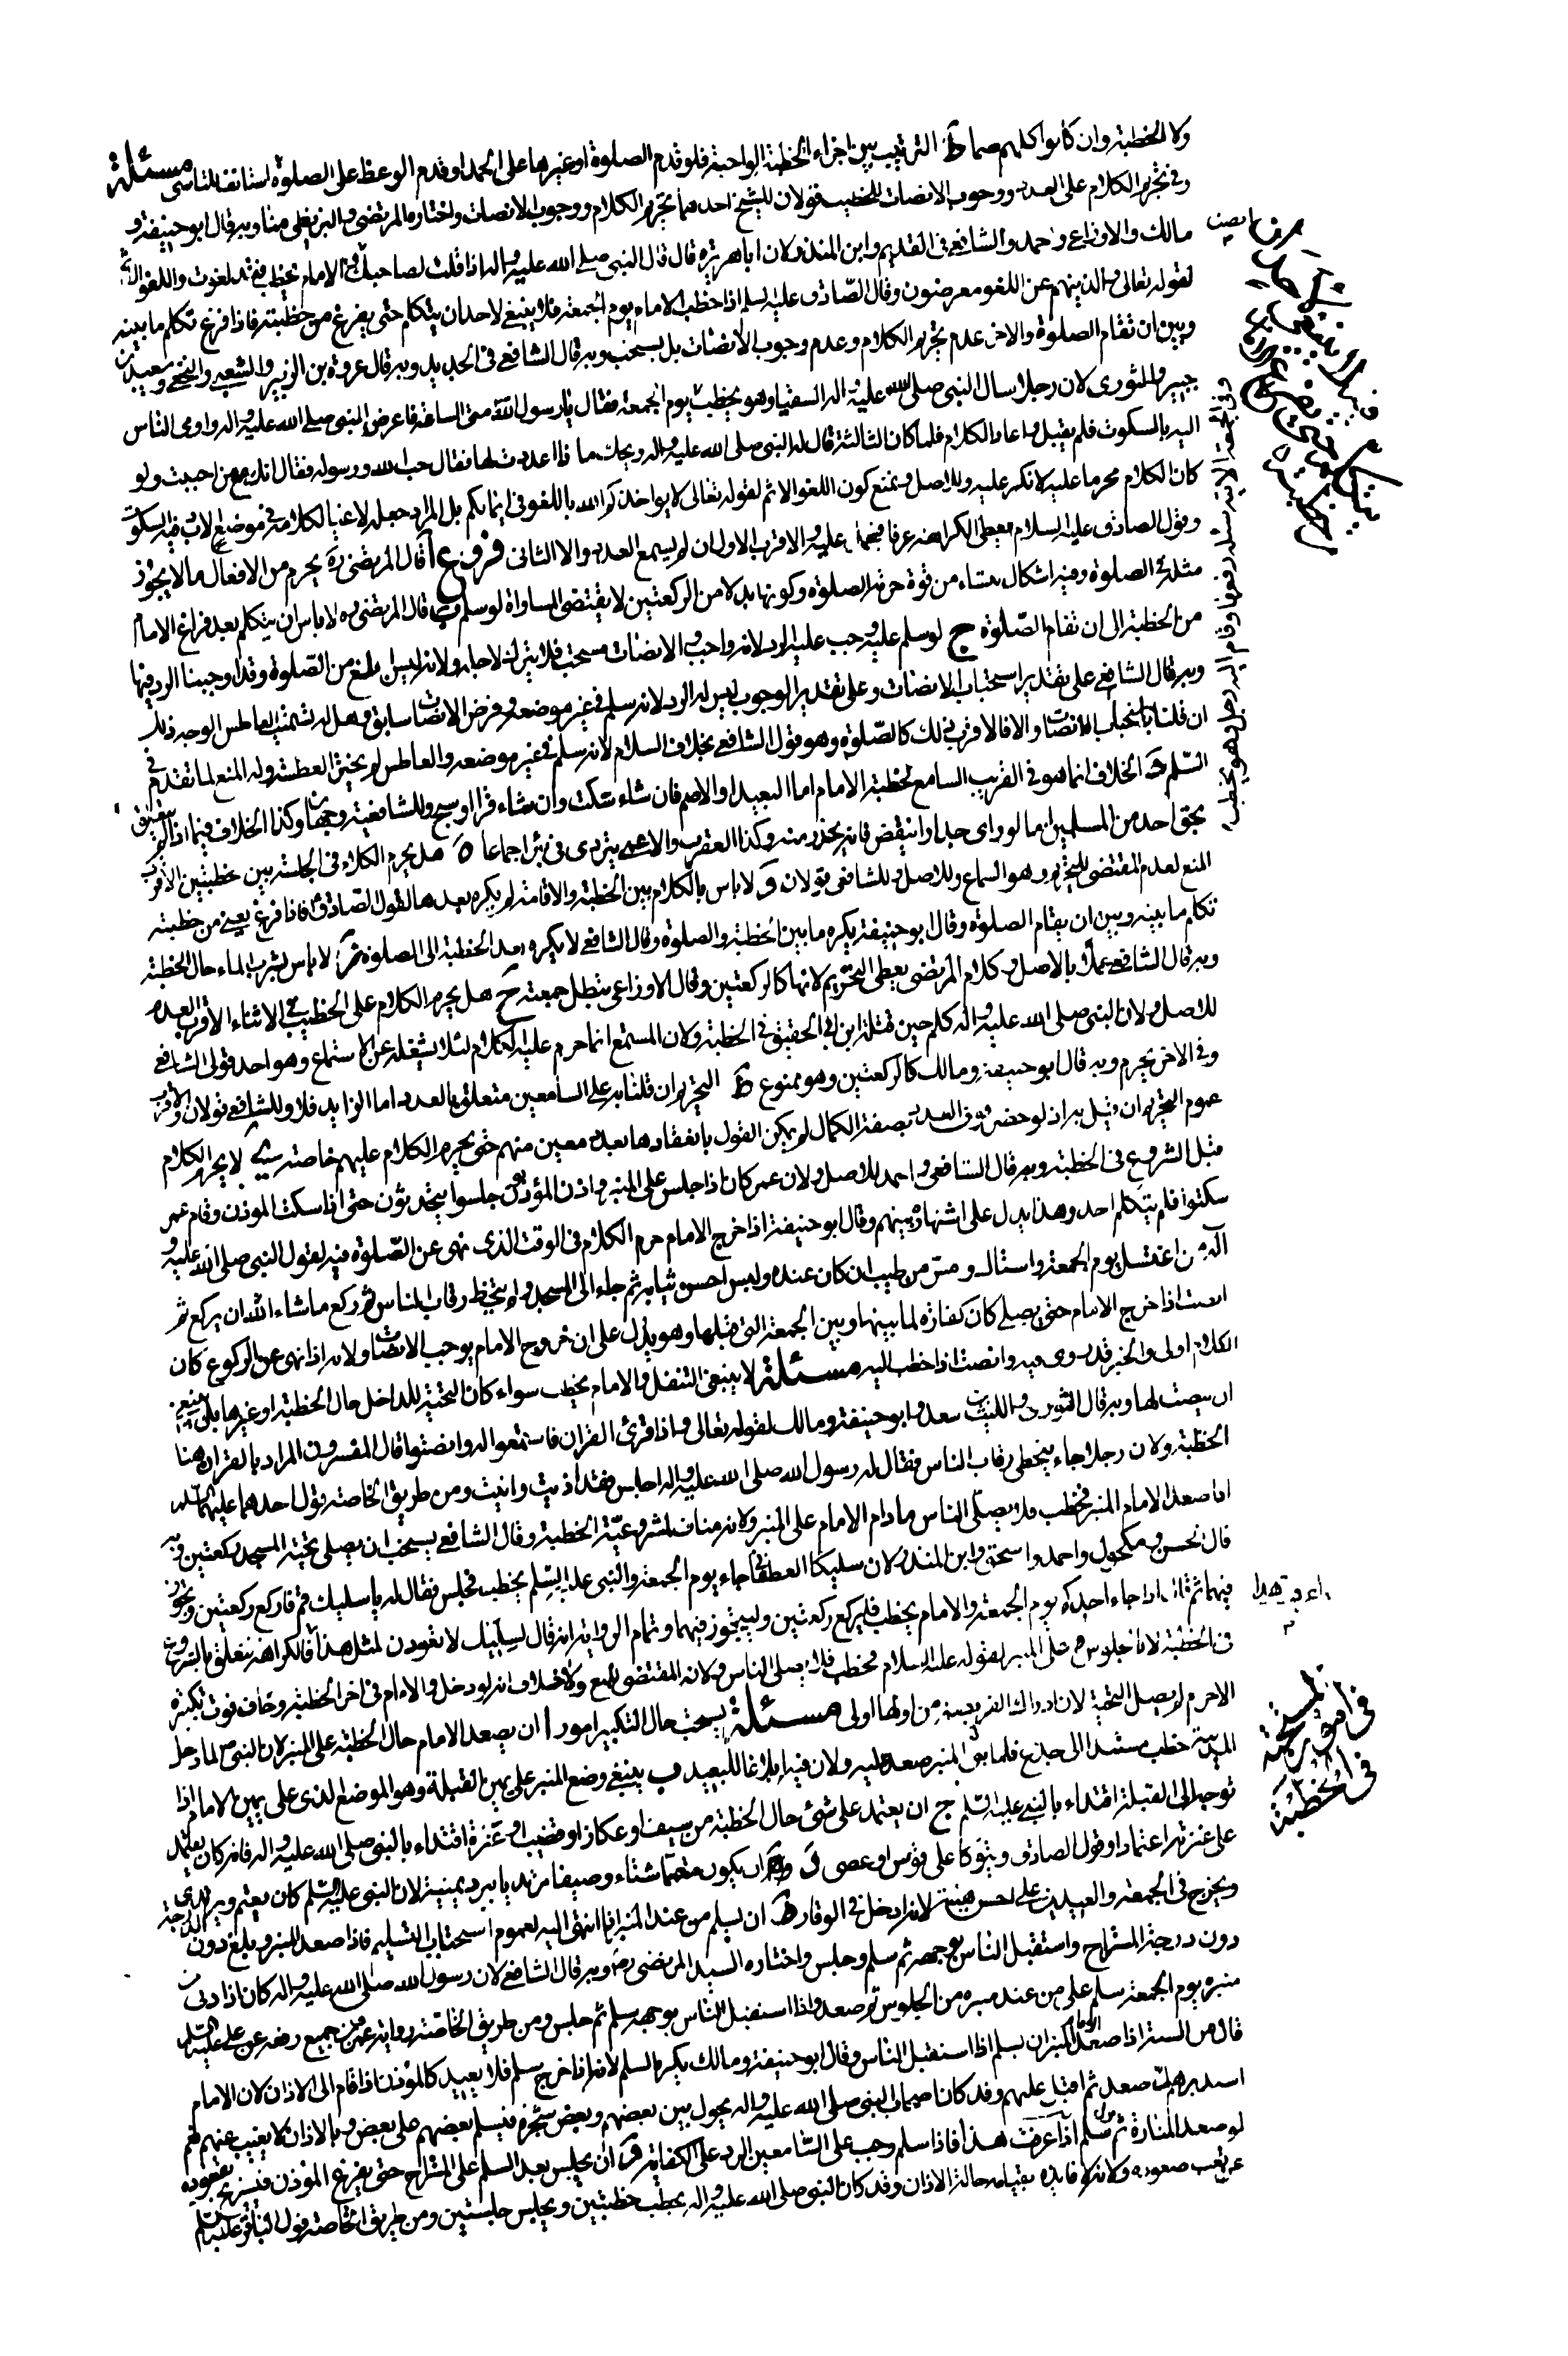 ولا الخطبة وان كانوا كلهم صما ط الترتيب بين اجزاء الخطبة الواحبة فلو قدم الصلوة او غيرها على الحمد او قدم الوعظ على الصلوة استانف للتاسى مسئلة
وفى تحريم الكلام على العدد ووجوب الانصات للخطيب قولان للشيخ احدهما تحريم الكلام ووجوب الانصات واختاره المرتضى والبزنطى منا وبه قال ابو حنيفة و
مالك والاوزاعى واحمد والشافعى فى القديم وابن المنذر ولان ابا هريرة قال قال النبى صلى الله عليه واله اذا قلت لصاحبك والامام يخطب فقد لغوت واللغو الاثم
لقوله تعالى والذين هم عن اللغو معرضون وقال الصادق عليه السلم اذا خطب الامام يوم الجمعة فلا ينبغى لاحد ان يتكلم حتى يفرغ من خطبته فاذا فرغ تكلم ما بينه
وبين ان تقام الصلوة والاخر عدم تحريم الكلام وعدم وجوب الانصات بل يستحب وبه قال الشافعى فى الجديد وبه قال عروة بن الزبير والشعبى والنخعى وسعيد بن
جبير والثورى لان رجلا سال النبى صلى الله عليه واله السقيا وهو يخطب يوم الجمعة فقال يا رسول الله متى الساعة فاعرض النبى صلى الله عليه واله واومى الناس
اليه بالسكوت فلم يقبل واعاد الكلام فلما كان الثالثة قال له النبى صلى الله عليه واله ويحك ما ذا اعددت لها فقال حب الله ورسوله فقال انك مع من احببت ولو
كان الكلام محرما عليه لانكر عليه وللاصل ونمنع كون اللغو الاثم لقوله تعالى لا يواخذكم الله باللغو فى ايمانكم بل المراد جعله لاغيا لكلامه فى موضع الادب فيه السكوت
وقول الصادق عليه السلام يعطى الكراهة عرفا عليه والاقرب الاول ان لم يسمع العدد والا الثانى فروع ا قال المرتضى ره يحرم من الافعال ما لا يجوز
مثله فى الصلوة وفيه اشكال ينشاء من قوة حرمة الصلوة وكونها بدلا من الركعتين لا يقتضى المساواة لو سلم ب قال المرتضى ره لا باس ان يتكلم بعد فراغ الامام
من الخطبة الى ان تقام الصلوة ج لو سلم عليه وجب عليه الرد لانه واجب والانصات مستحب فلا يترك لاجله ولانه ليس ابلغ من الصلوة وقد اوجبنا الرد فيها
وبه قال الشافعى على تقدير استحباب الانصات وعلى تقدير الوجوب ليس له الرد لانه سلم فى غير موضعه وفرض الانصات سابق وهل له تشميت العاطس الوجه ذلك
ان قلنا باستحباب الانصات والا فالاقرب ذلك كالصلوة وهو قول الشافعى بخلاف السلام لانه سلم فى غير موضعه والعاطس لم يختر العطسة وله المنع لما تقدم فى
السلم د الخلاف انما هو فى القريب السامع لخطبة الامام اما البعيد او الاصم فان شاء سكت وان شاء قرا او سبح وللشافعية وجهان وكذا الخلاف فيما اذا لم يتعلق
بحق احد من المسلمين اما لو راى جدارا ينقض فانه يحذر منه وكذا العقرب والاعمى يتردى فى بئر اجماعا ه هل يحرم الكلام فى الجلسة بين خطبتين الاقرب
المنع لعدم المقتضى للتحريم وهو السماع وللاصل وللشافعى قولان و لا باس بالكلام بين الخطبة والاقامة لم يكره بعدها لقول الصادق فاذا فرغ يعنى من خطبته
تكلم ما بينه وبين ان يقام الصلوة وقال ابو حنيفة يكره ما بين الخطبة والصلوة وقال الشافعى لا يكره بعد الخطبة الى الصلوة ز لا باس بشرب الماء حال الخطبة
وبه قال الشافعى عملا بالاصل وكلام المرتضى يعطى التحريم لانها كالركعتين وقال الاوزاعى تبطل جمعته ح هل يحرم الكلام على الخطيب فى الاثناء الاقرب العدم
للاصل ولان النبى صلى الله عليه واله كلم حين قتلة ابن ابى الحقيق فى الخطبة ولان المستمع انما حرم عليه الكلام لئلا يشغله عن الاستماع وهو احد قولى الشافعى
وفى الاخر يحرم وبه قال ابو حنيفة ومالك كالركعتين وهو ممنوع ط التحريم ان قلنا به على السامعين متعلق بالعدد اما الزايد فلا وللشافعى قولان والاقرب
عموم التحريم ان قيل به اذ لو حضر فوق العدد بصفة الكمال لم يمكن القول بانعقادها بعدد معين منهم حتى يحرم الكلام عليهم خاصة ى لا يحرم الكلام
قبل الشروع فى الخطبة وبه قال الشافعى واحمد للاصل ولان عمر كان اذا جلس على المنبر واذن المؤذن جلسوا يتحدثون حتى اذا سكت الموذن وقام عمر
سكتوا فلم يتكلم احد وهذا يدل على اشتهاره بينهم وقال ابو حنيفة اذا خرج الامام حرم الكلام فى الوقت الذى نهى عن الصلوة فيه لقول النبى صلى الله عليه و
آله من اغتسل يوم الجمعة واستاك ومس من طيب ان كان عنده ولبس احسن ثيابه ثم جاء الى المسجد ولم يتخط رقاب الناس ثم ركع ما شاء الله ان يركع ثم
انصت اذا خرج الامام حتى يصلى كان كفارة لما بينها وبين الجمعة التى قبلها وهو يدل على ان خروج الامام يوجب الانصات ولانه اذا نهى عن الركوع كان
الكلام اولى والخبر قد روى فيه وانصت اذا خطب اليه مسئلة لا ينبغى التنفل والامام يخطب سواء كان التحية للداخل حال الخطبة او غيرها بل ينبغى
ان ينصت لها وبه قال الثورى والليث بن سعد وابو حنيفة ومالك لقوله تعالى واذا قرئ القران فاستمعوا له وانصتوا قال المفسرون المراد بالقران هنا
الخطبة ولان رجلا جاء يتخطى رقاب الناس فقال له رسول الله صلى الله عليه واله اجلس فقد اذيت وانيت ومن طريق الخاصة قول احدهما عليهما السلم
اذا صعد الامام المنبر فخطب فلا يصلى الناس ما دام الامام على المنبر ولانه مناف لمشروعية الخطبة وقال الشافعى يستحب ان يصلى تحية المسجد ركعتين وبه
قال الحسن ومكحول واحمد واسحق وابن المنذر لان سليكا الغطفانى جاء يوم الجمعة والنبى عليه السلم يخطب فجلس فقال له يا سليك قم فاركع ركعتين وتجوز
فيهما ثم قال اذا جاء احدكم يوم الجمعة والامام يخطب فليركع ركعتين وليتجوز فيهما وتمام الرواية انه قال لسليك لا تعودن لمثل هذا فالكراهة تتعلق بالشروع
فى الخطبة لا بالجلوس على المنبر لقوله عليه السلام فخطب فلا يصلى الناس ولانه المقتضى للمنع ولا خلاف انه لو دخل والامام فى اخر الخطبة وخاف فوت تكبيرة
الاحرام لم يصل التحية لان ادراك الفريضة من اولها اولى مسئلة يستحب حال التكبير امور ا ان يصعد الامام حال الخطبة على المنبر لان النبى ص لما دخل
المدينة خطب مستندا الى جذع فلما بنى المنبر صعد عليه ولان فيه ابلاغا للبعيد ب ينبغى وضع المنبر على يمين القبلة وهو الموضع الذى على يمين الامام اذا
توجه الى القبلة اقتداء بالنبى عليه السلم ج ان يعتمد على شئ حال الخطبة من سيف او عكاز او قضيب او عنزة اقتداء بالنبى صلى الله عليه واله فانه كان يعتمد
على عنزته اعتمادا وقول الصادق ويتوكا على قوس او عصى د ان يكون متعمما شتاء وصيفا مرتديا ببرد يمنية لان النبى عليه السلم كان يعتم ويرتدى
ويخرج فى الجمعة والعيدين على احسن هيئة لانه ادخل فى الوقار ط ان يسلم من عند المنبر اذا انتهى اليه لعموم استحباب التسليم فاذا صعد المنبر وبلغ دون الدرجة
دون درجة المستراح واستقبل الناس بوجهه ثم سلم وجلس واختاره السيد المرتضى ره وبه قال الشافعى لان رسول الله صلى الله عليه واله كان اذا دنى من
منبره يوم الجمعة سلم على من عند منبره من الجلوس ثم صعد واذا استقبل الناس بوجهه سلم ثم جلس ومن طريق الخاصة رواية عمرو بن جميع رفعه عن على عليه السلم
قال من السنة اذا صعد الامام المنبر ان يسلم اذا استقبل الناس وقال ابو حنيفة ومالك يكره السلم لانه اذا خرج سلم فلا يعيد كالموذن اذا قام الى الاذان لان الامام
استدبرهم لما صعد ثم اقبل عليهم وقد كان اصحاب النبى صلى الله عليه واله يحول بين بعضهم وبعض شجرة فيسلم بعضهم على بعض وبالاذان لا يغيب عنهم ثم
لو صعد المنارة ثم نزل سلم اذا عرفت هذا فاذا سلم وجب على السامعين الرد على الكفاية و ان يجلس بعد السلم على المستراح حتى يفرغ الموذن فيستريح بقعوده
عن تعب صعوده ولانه لا فايدة بقيامه حالة الاذان وقد كان النبى صلى الله عليه واله يخطب خطبتين ويجلس جلستين ومن طريق الخاصة قول الباقر عليه السلم
فى امور مستحبة
فى الخطبة